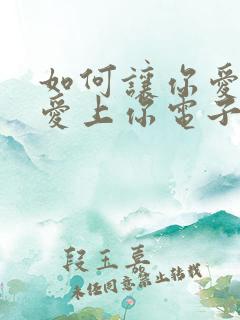 如何讓你愛
愛上你电子
段玉喜
未任同意禁止转载